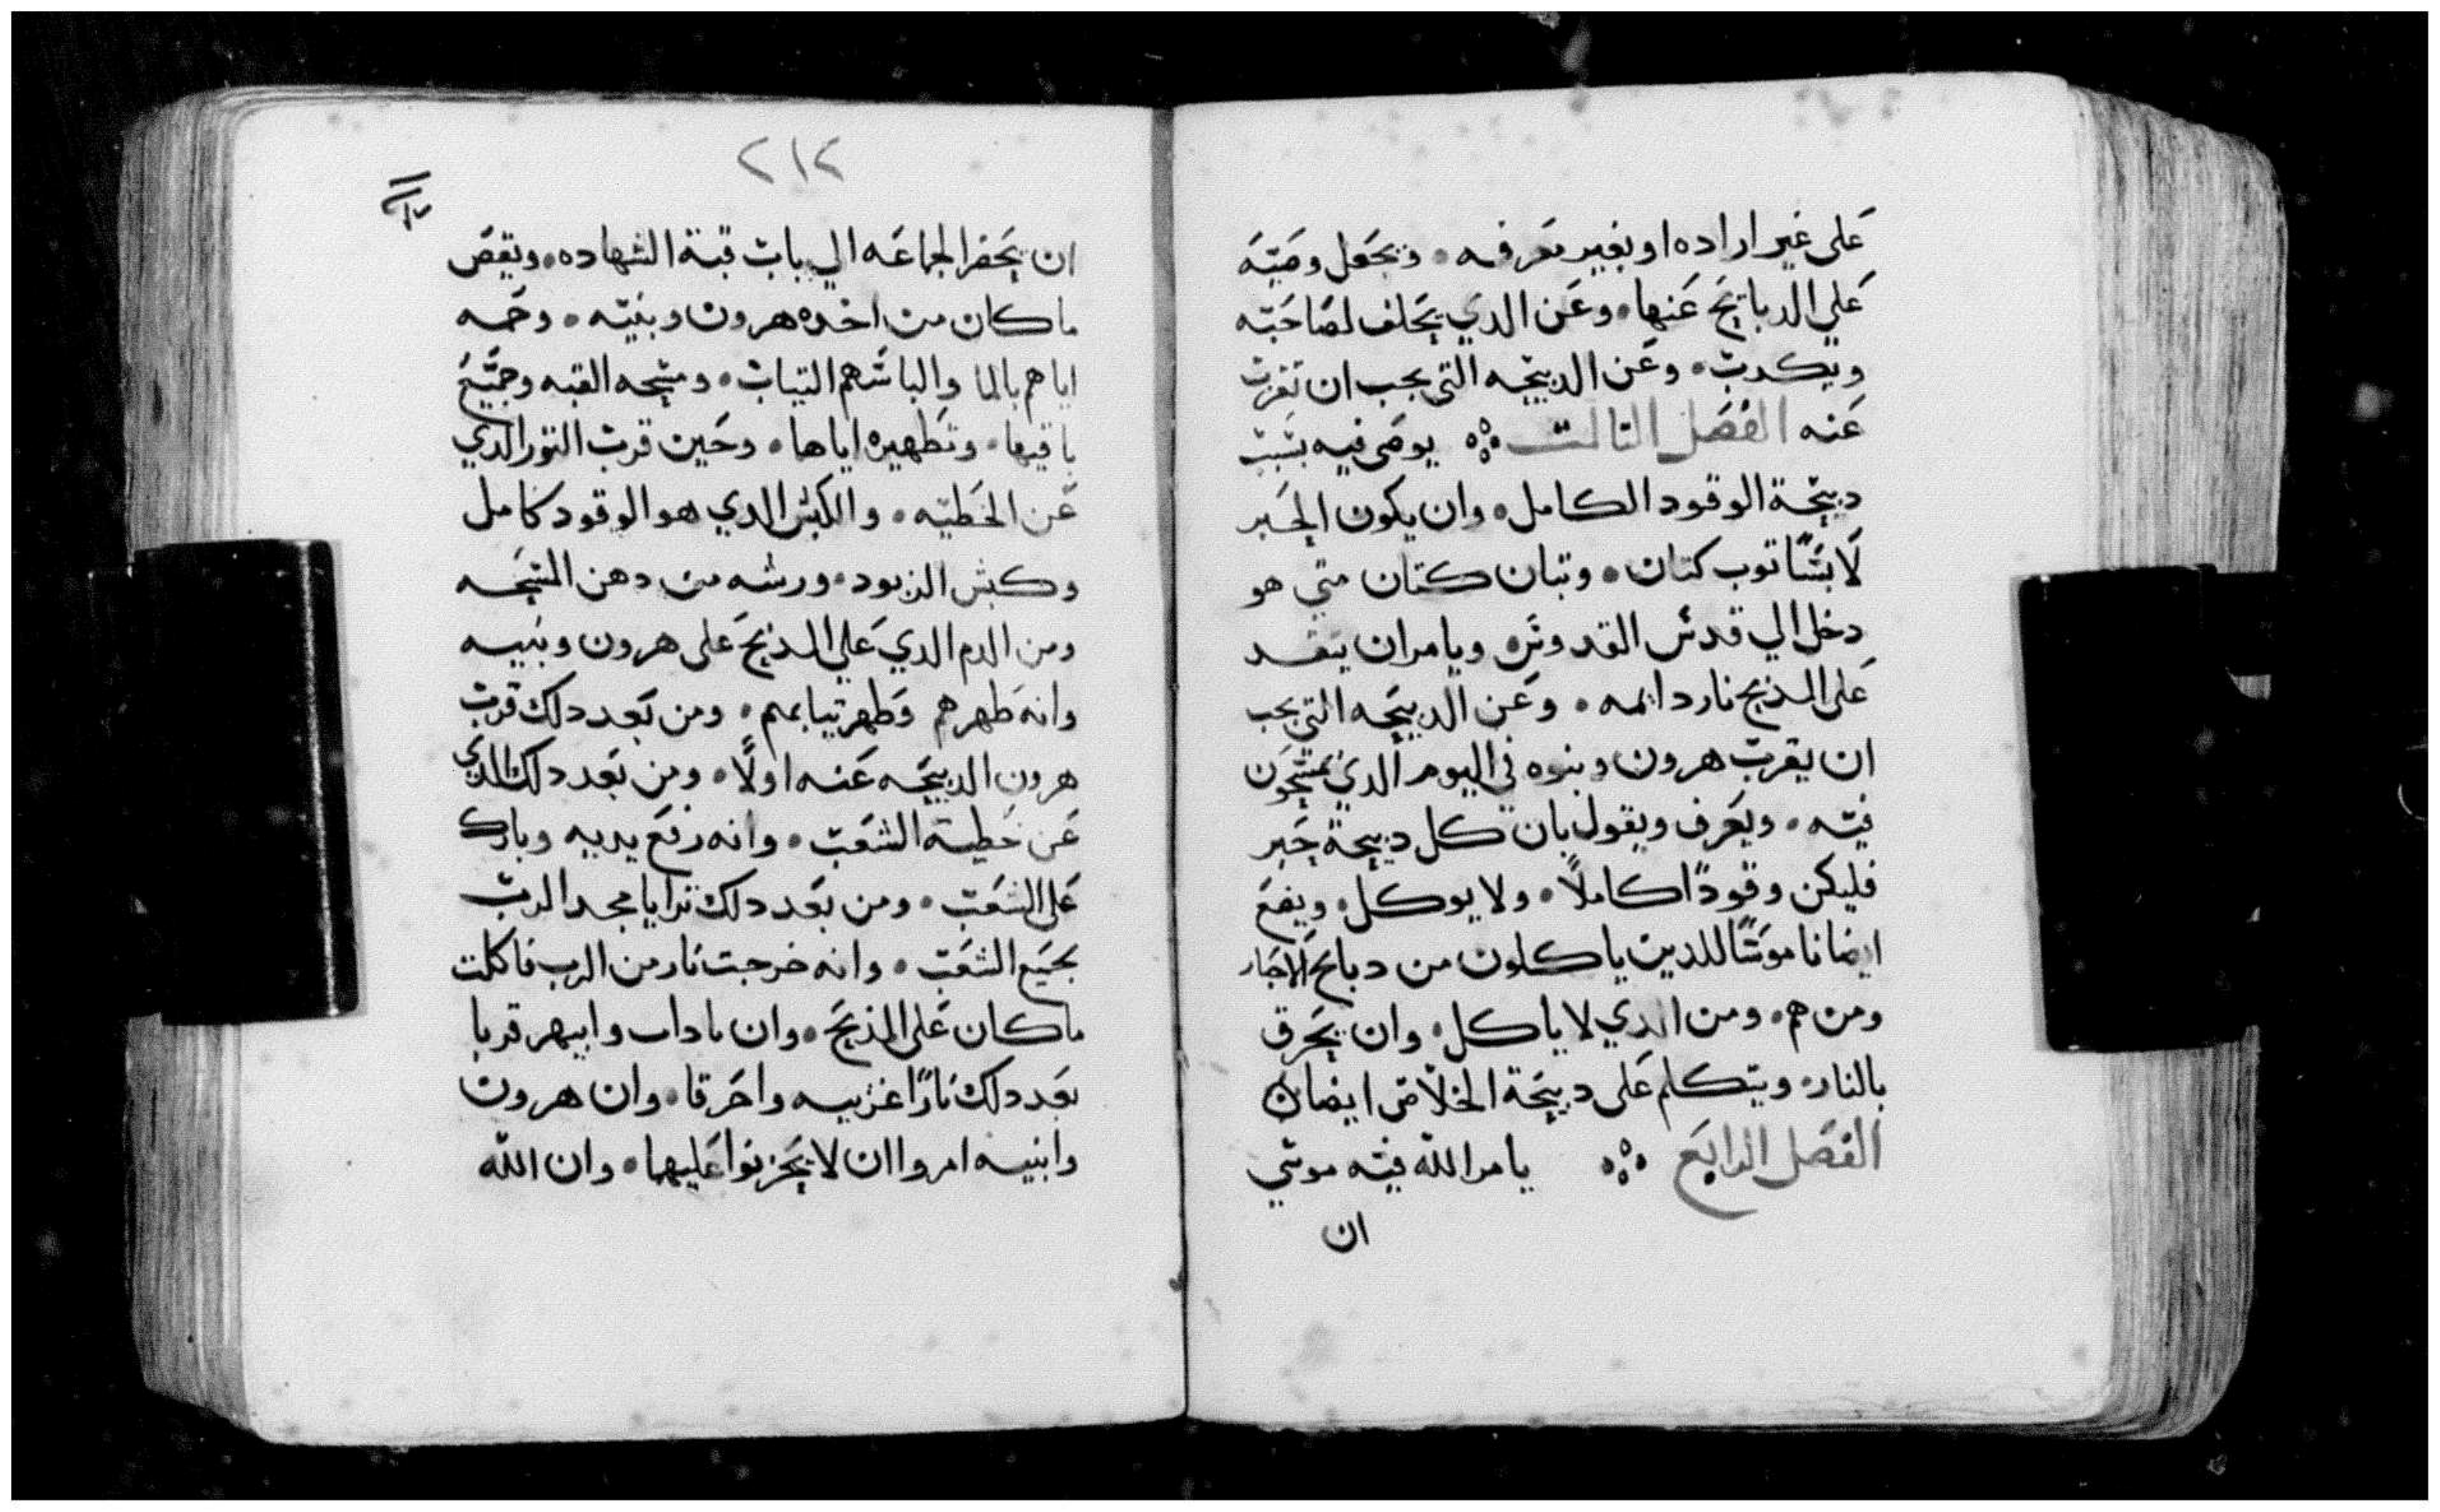 على غير اراده او بغير معرفه • ويجعل وصيّة
علي الدبايح عنها • وعن الدي يحلف لصاحبه
ويكدب • وعن الدبيحه التي يجب ان تقرب
عنه الفصل التالت ❖ يوصي فيه بسبب
دبيحة الوقود الكامل • وان يكون الحبر
لابسًا توب كتان • وتبان كتان متي هو
دخل الي قدس القدوس • ويامر ان يتقد
على المذبح نار دايمه • وعن الدبيحه التي يجب
ان يقرب هرون وبنوه في اليوم الدي يمسحون
فيه • ويعرف ويقول بان كل دبيحة حبر
فليكن وقودًا كاملًا • ولا يوكل • ويضع
ايضا ناموسًا للدين ياكلون من دبايح الاحبار
ومن هم • ومن الدي لا ياكل • وان يحرق
بالنار • ويتكلم على دبيحة الخلاص ايضا
الفصل الرابع ❖ يامر الله فيه موسي
ان
٢١٢
ان يحضر الجماعه الي باب قبة الشهاده • ويقص
ما كان من اخده هرون وبنيه • وحمه
اياهم بالما والباسهم التياب • ومسحه القبه وجميع
باقيها • وتطهيره اياها • وحين قرب التور الدي
عن الخطيه • والكبش الدي هو الوقود كامل
وكبش الزبود • ورشه من دهن المسحه
ومن الدم الدي علي المذبح على هرون وبنيه
وانه طهرهم وطهر تيابهم • ومن بعد دلك قرب
هرون الدبيحه عنه اولًا • ومن بعد دلك الدي
عن خطية الشعب • وانه رفع يديه وبارك
على الشعب • ومن بعد دلك ترايا مجد الرب
بجميع الشعب • وانه خرجت نار من الرب فاكلت
ما كان على المذبح • وان ناداب وابيهر قربا
بعد دلك نارًا غريبه واحرقا • وان هرون
وابنيه امروا ان لا يحزنوا عليهما • وان الله